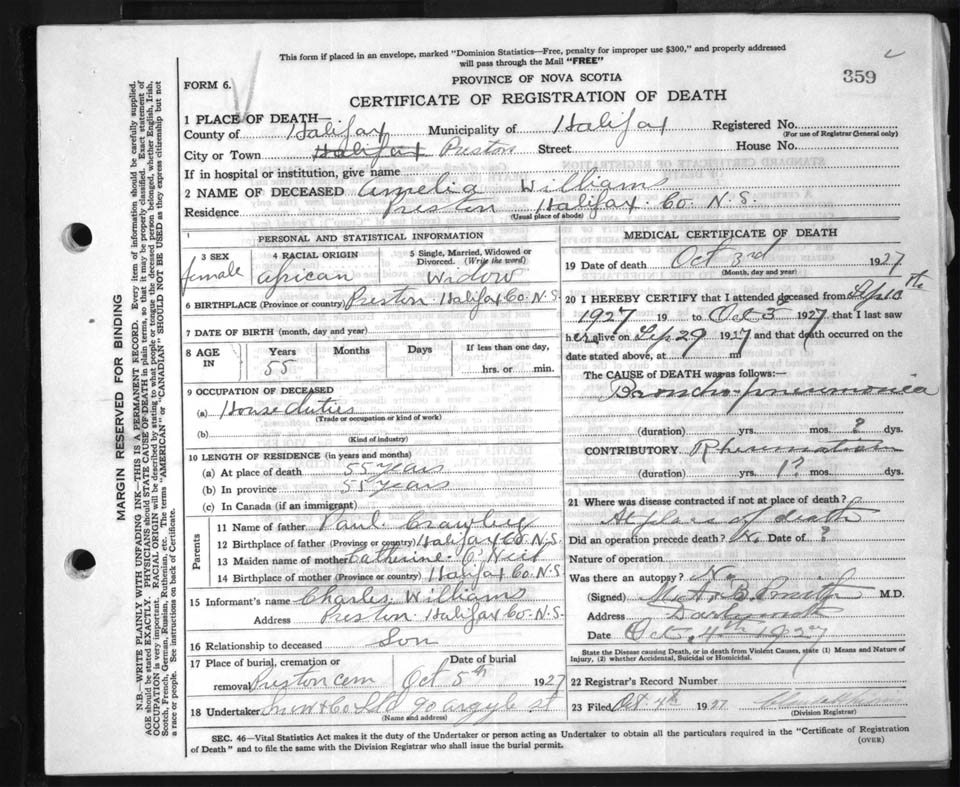 This form if placed in an envelope, marked "Dominion Statistics—Free, penalty for improper use $300," and properly addressed
will pass through the Mail "FREE"
FORM 6.
PROVINCE OF NOVA SCOTIA
359
CERTIFICATE OF REGISTRATION OF DEATH
1 PLACE OF DEATH—
County of Halifax Municipality of Halifax Registered No.
(For use of Registrar General only)
City or Town Halifax Preston Street House No.
If in hospital or institution, give name
2 NAME OF DECEASED Amelia Williams
Residence Preston Halifax Co. N.S.
(Usual place of abode)
PERSONAL AND STATISTICAL INFORMATION
3 SEX 4 RACIAL ORIGIN 5 Single, Married, Widowed or Divorced. (Write the word)
female african Widow
6 BIRTHPLACE (Province or country) Preston Halifax Co. N.S.
7 DATE OF BIRTH (month, day and year)
8 AGE IN Years Months Days If less than one day,
55 hrs. or min.
9 OCCUPATION OF DECEASED
(a) House duties
(Trade or occupation or kind of work)
(b)
(Kind of industry)
10 LENGTH OF RESIDENCE (in years and months)
(a) At place of death 55 years
(b) In province 55 years
(c) In Canada (if an immigrant)
Parents
11 Name of father Paul Crawley
12 Birthplace of father (Province or country) Halifax Co. N.S.
13 Maiden name of mother Catherine O'Neil
14 Birthplace of mother (Province or country) Halifax Co N.S
15 Informant's name Charles Williams
Address Preston Halifax Co. N.S.
16 Relationship to deceased Son
17 Place of burial, cremation or Date of burial
removal Preston cem Oct 5th 1927
18 Undertaker Snow & Co Ltd 90 argyle st
(Name and address)
MEDICAL CERTIFICATE OF DEATH
19 Date of death Oct 3rd 1927
(Month, day and year)
20 I HEREBY CERTIFY that I attended deceased from Sep 10th
1927 19 to Oct 3 1927, that I last saw
her alive on Sep 29 1927 and that death occurred on the
date stated above, at m
The CAUSE of DEATH was as follows:—
Broncho-pneumonia
(duration) yrs. mos. ? dys.
CONTRIBUTORY Rheumatism
(duration) yrs. 1? mos. dys.
21 Where was disease contracted if not at place of death?
At place of death
Did an operation precede death? No Date of ?
Nature of operation
Was there an autopsy? No
(Signed) M.D.
Address Dartmouth
Date Oct. 4th 1927
State the Disease causing Death, or in death from Violent Causes, state (1) Means and Nature of
Injury, (2) whether Accidental, Suicidal or Homicidal.
22 Registrar's Record Number
23 Filed Oct 4th 1927
(Division Registrar)
SEC. 46—Vital Statistics Act makes it duty of the Undertaker or person acting as Undertaker to obtain all the particulars required in the "Certificate of Registration
of Death" and to file the same with the Division Registrar who shall issue the burial permit.
(OVER)
MARGIN RESERVED FOR BINDING
N.B.—WRITE PLAINLY WITH UNFADING INK—THIS IS A PERMANENT RECORD. Every item of information should be carefully supplied.
AGE should be stated EXACTLY. PHYSICIANS should STATE CAUSE OF DEATH in plain terms, so that it may be properly classified. Exact statement of
OCCUPATION is very important. RACIAL ORIGIN will be described by stating to what people or tongue the deceased person belonged, whether English, Irish,
Scotch, French, German, Russian, Ruthenian, etc. The terms "AMERICAN" or "CANADIAN" SHOULD NOT BE USED as they express citizenship but not
a race or people. See instructions on back of Certificate.